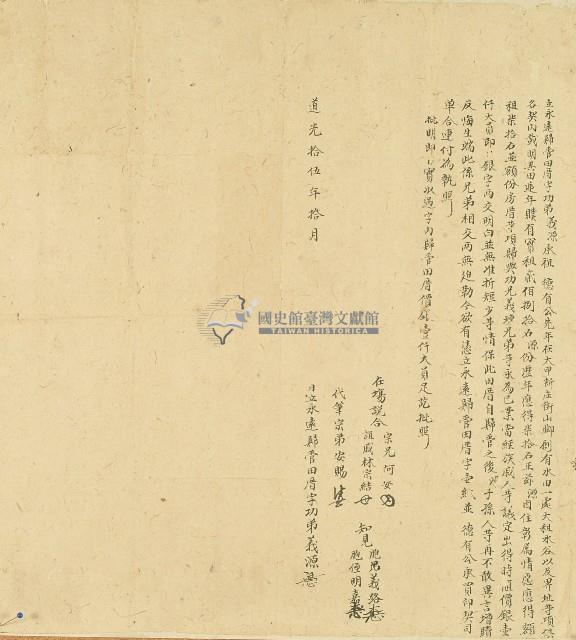 立永遠歸管田厝字功弟義源承祖 德有公先年在大甲 庄 山腳創有水田一處大租水谷以及界址等項俱
各契內載明其田連年贌有實租貳佰捌拾石源份歷年應得柒拾石正茲源因住彰屬情愿應得額
租柒拾石並額份房厝等項歸與功兄義 兄弟等永為己業當經族戚人等議定出得時値價銀壹
仟大員即日銀字兩交明白並無准折短少等情保此田厝自歸管之後 子孫人等再不敢異言增贖
反悔生端此係兄弟相交兩無迫勒今欲有憑立永遠歸管田厝字壹紙並 德有公承買印契司
單合連付為執照
批明即日實收過字內歸管田厝價銀壹仟大員足訖批照
在塲說合 宗兄 阿安
誼戚林宗結
知見 胞兄義
胞侄明
代筆宗弟安賜
道光拾伍年拾月
日立永遠歸管田厝字功弟義源
國史館臺灣文獻館
TAIWAN HISTORICA